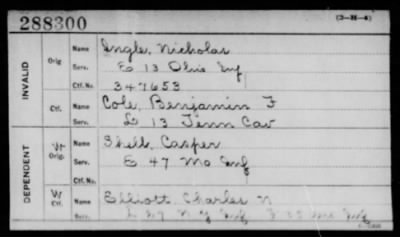 288300
(3-H-4)
INVALID
Orig
Name Ingle, Nicholas
Serv. E 13 Ohio Inf
Ctf. No. 347653
Ctf.
Name Cole, Benjamin F
Serv. L 13 Tenn Cav
DEPENDENT
Orig.
Name Shell, Casper
Serv. E 47 Mo Inf
Ctf. No.
Ctf.
Name Elliott Charles N
Serv. Inf Inf